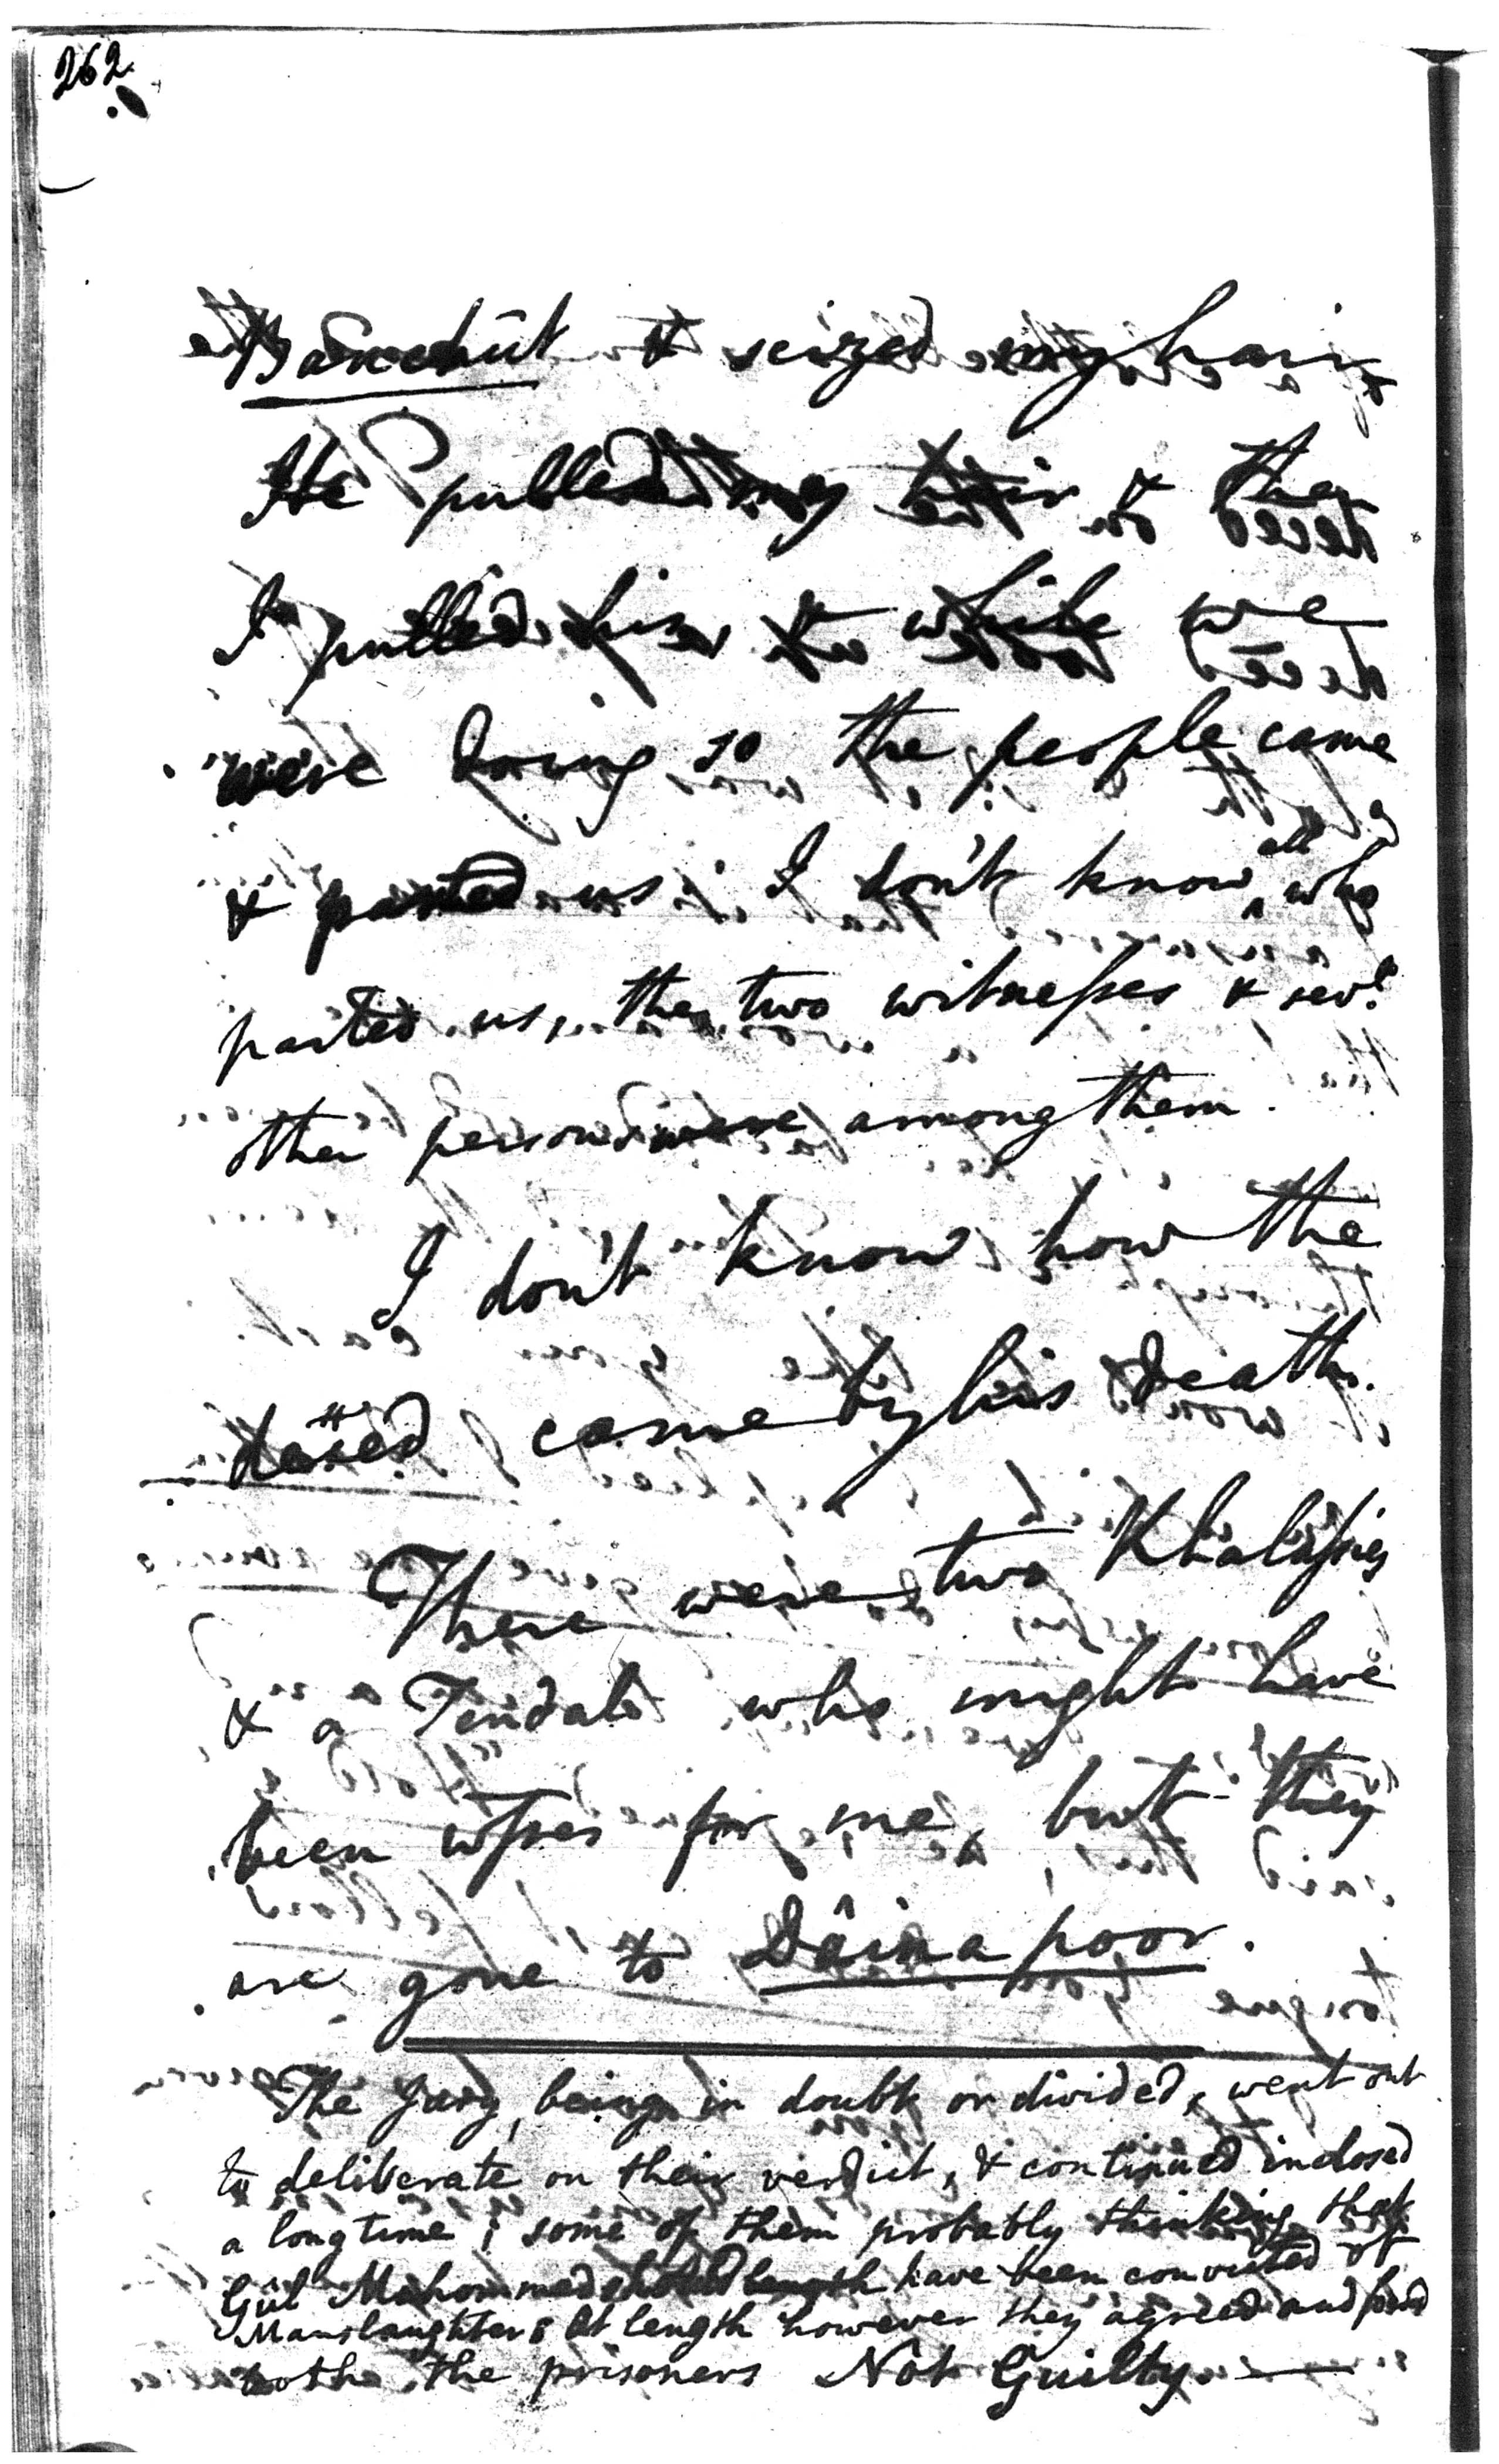 262.
Banchût & seized my hair
He pulled my hair & then
I pulled his & while we
were doing so the people came
& parted us; I don't know all who
parted us, the two witneſses & sevl.
other persons were among them.
I don't know how the
deced came by his death.
There were two Khalaſsies
& a Tindal who might have
been wſses for me, but they
are gone to Dâinapoor.
The Jury, being in doubt or divided, went out
to deliberate on their verdict, & continued inclosed
a long time; some of them probably thinking that
Gûl Mahommed should have been convicted of
Manslaughter; At length however they agreed and found
both the prisoners Not Guilty. —